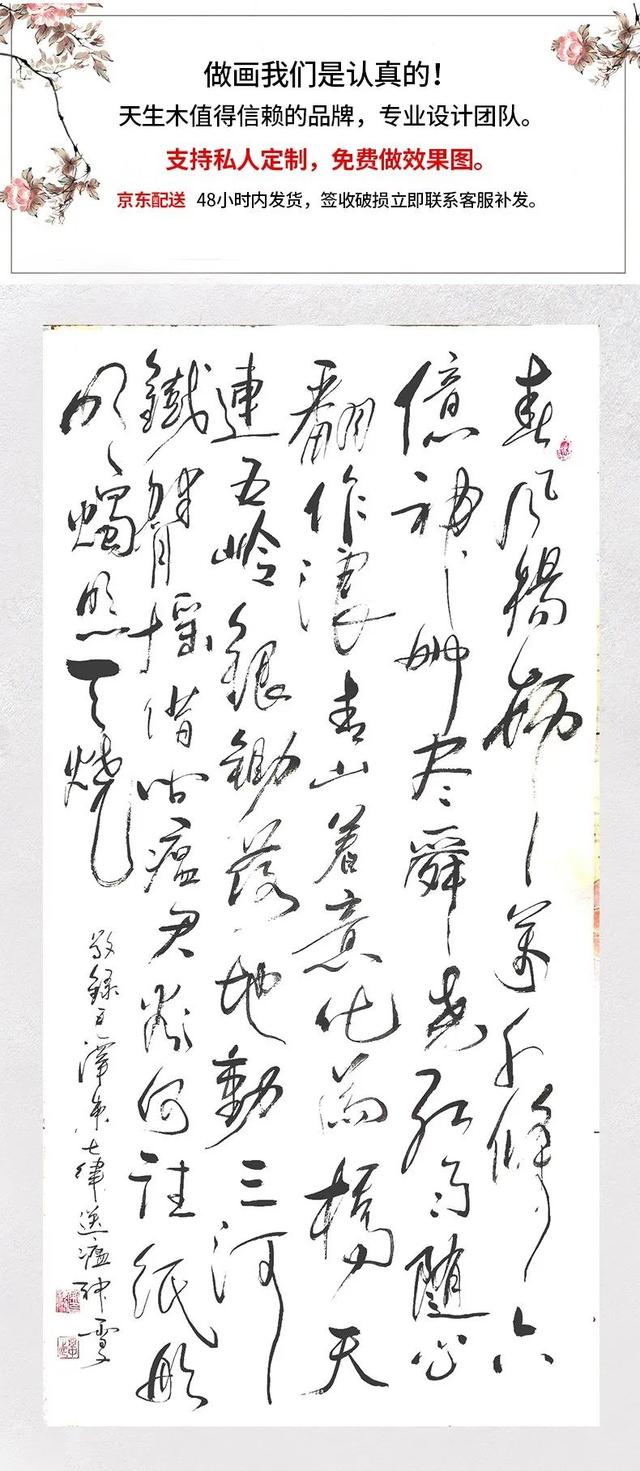 做画我们是认真的！
天生木值得信赖的品牌，专业设计团队。
支持私人定制，免费做效果图。
京东配送 48小时内发货，签收破损立即联系客服补发。
春风楊柳萬千條六
億神州尽舜尧红雨随心
翻作浪青山着意化为橋天
連五岭銀鋤落地動三河
鐵臂摇借问瘟君欲何往紙船
明燭照天燒
敬録毛澤東七律送瘟神雪